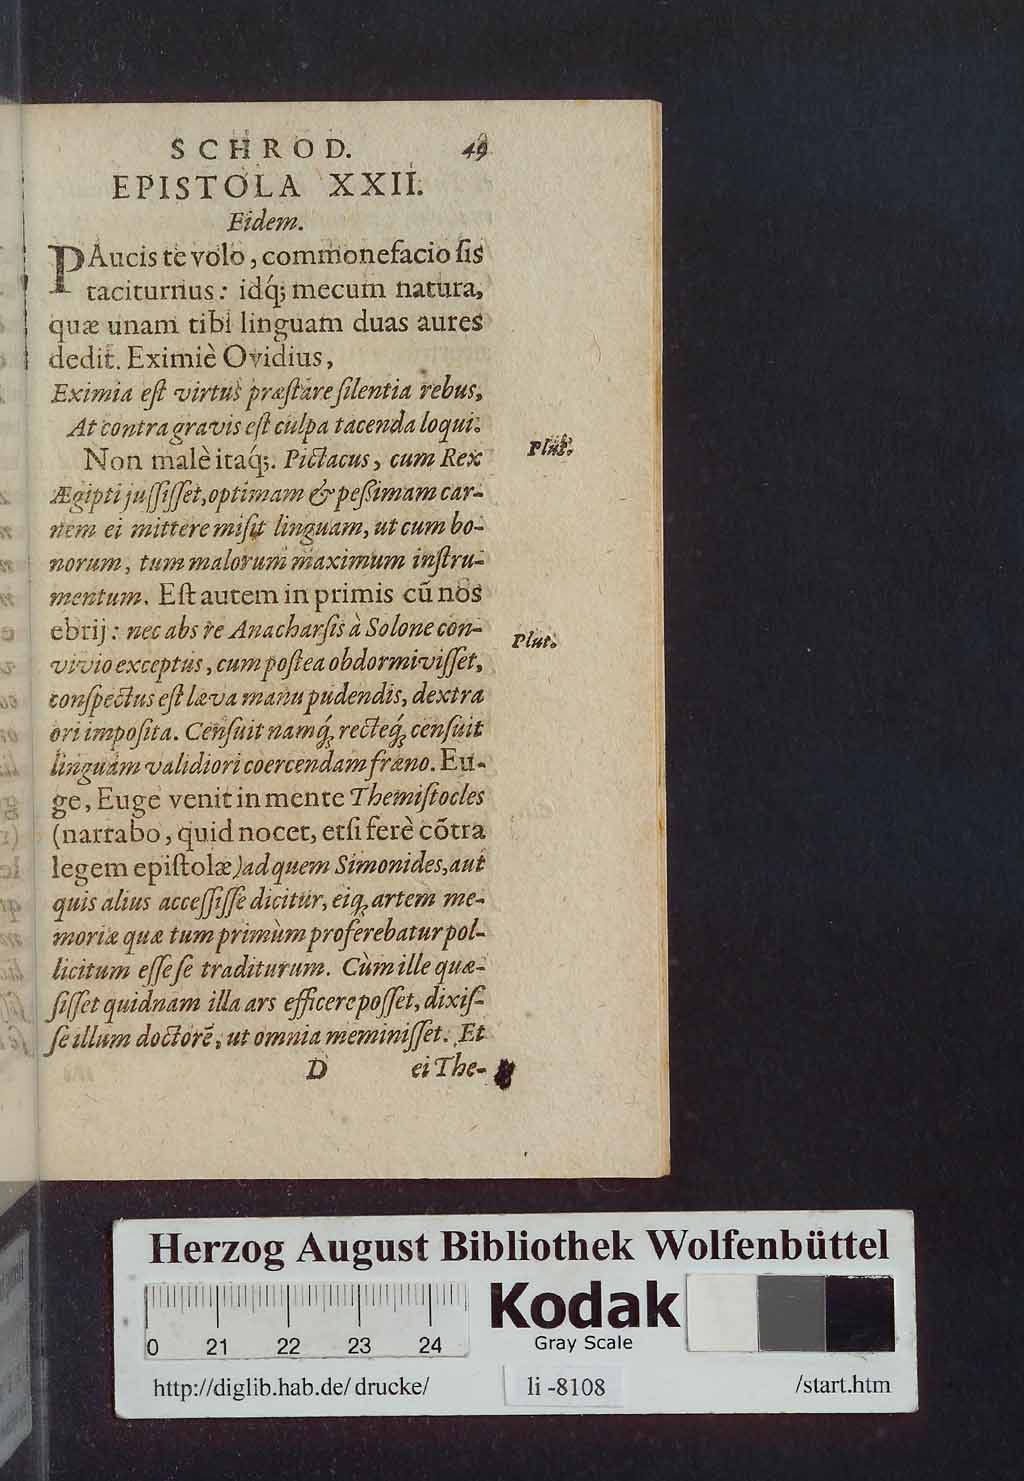 SCHROD. 49
EPISTOLA XXII.
Eidem.
PAucis te volo, commonefacio ſis
taciturnus: idq́; mecum natura,
quæ unam tibi linguam duas aures
dedit. Eximiè Ovidius,
Eximia eſt virtus præſtare ſilentia rebus,
At contra gravis eſt culpa tacenda loqui.
Non malè itaq́;. Pictacus, cum Rex
Plut.
Ægipti juſſiſſet, optimam & peſsimam car-
nem ei mittere miſit linguam, ut cum bo-
norum, tum malorum maximum inſtru-
mentum. Eſt autem in primis cũ nos
ebrij: nec abs re Anacharſis à Solone con-
Plut.
vivio exceptus, cum poſtea obdormiviſſet,
conſpectus eſt læva manu pudendis, dextra
ori impoſita. Cenſuit namq́; recteq́; cenſuit
linguam validiori coercendam fræno. Eu-
ge, Euge venit in mente Themiſtocles
(narrabo, quid nocet, etſi ferè cõtra
legem epiſtolæ) ad quem Simonides, aut
quis alius acceſſiſſe dicitur, eiq; artem me-
moriæ quæ tum primùm proferebatur pol-
licitum eſſe ſe traditurum. Cùm ille quæ-
ſiſſet quidnam illa ars efficere poſſet, dixiſ-
ſe illum doctorẽ, ut omnia meminiſſet. Et
D ei The-
Herzog August Bibliothek Wolfenbüttel
0 21 22 23 24
Kodak
Gray Scale
http://diglib.hab.de/drucke/ li -8108 /start.htm